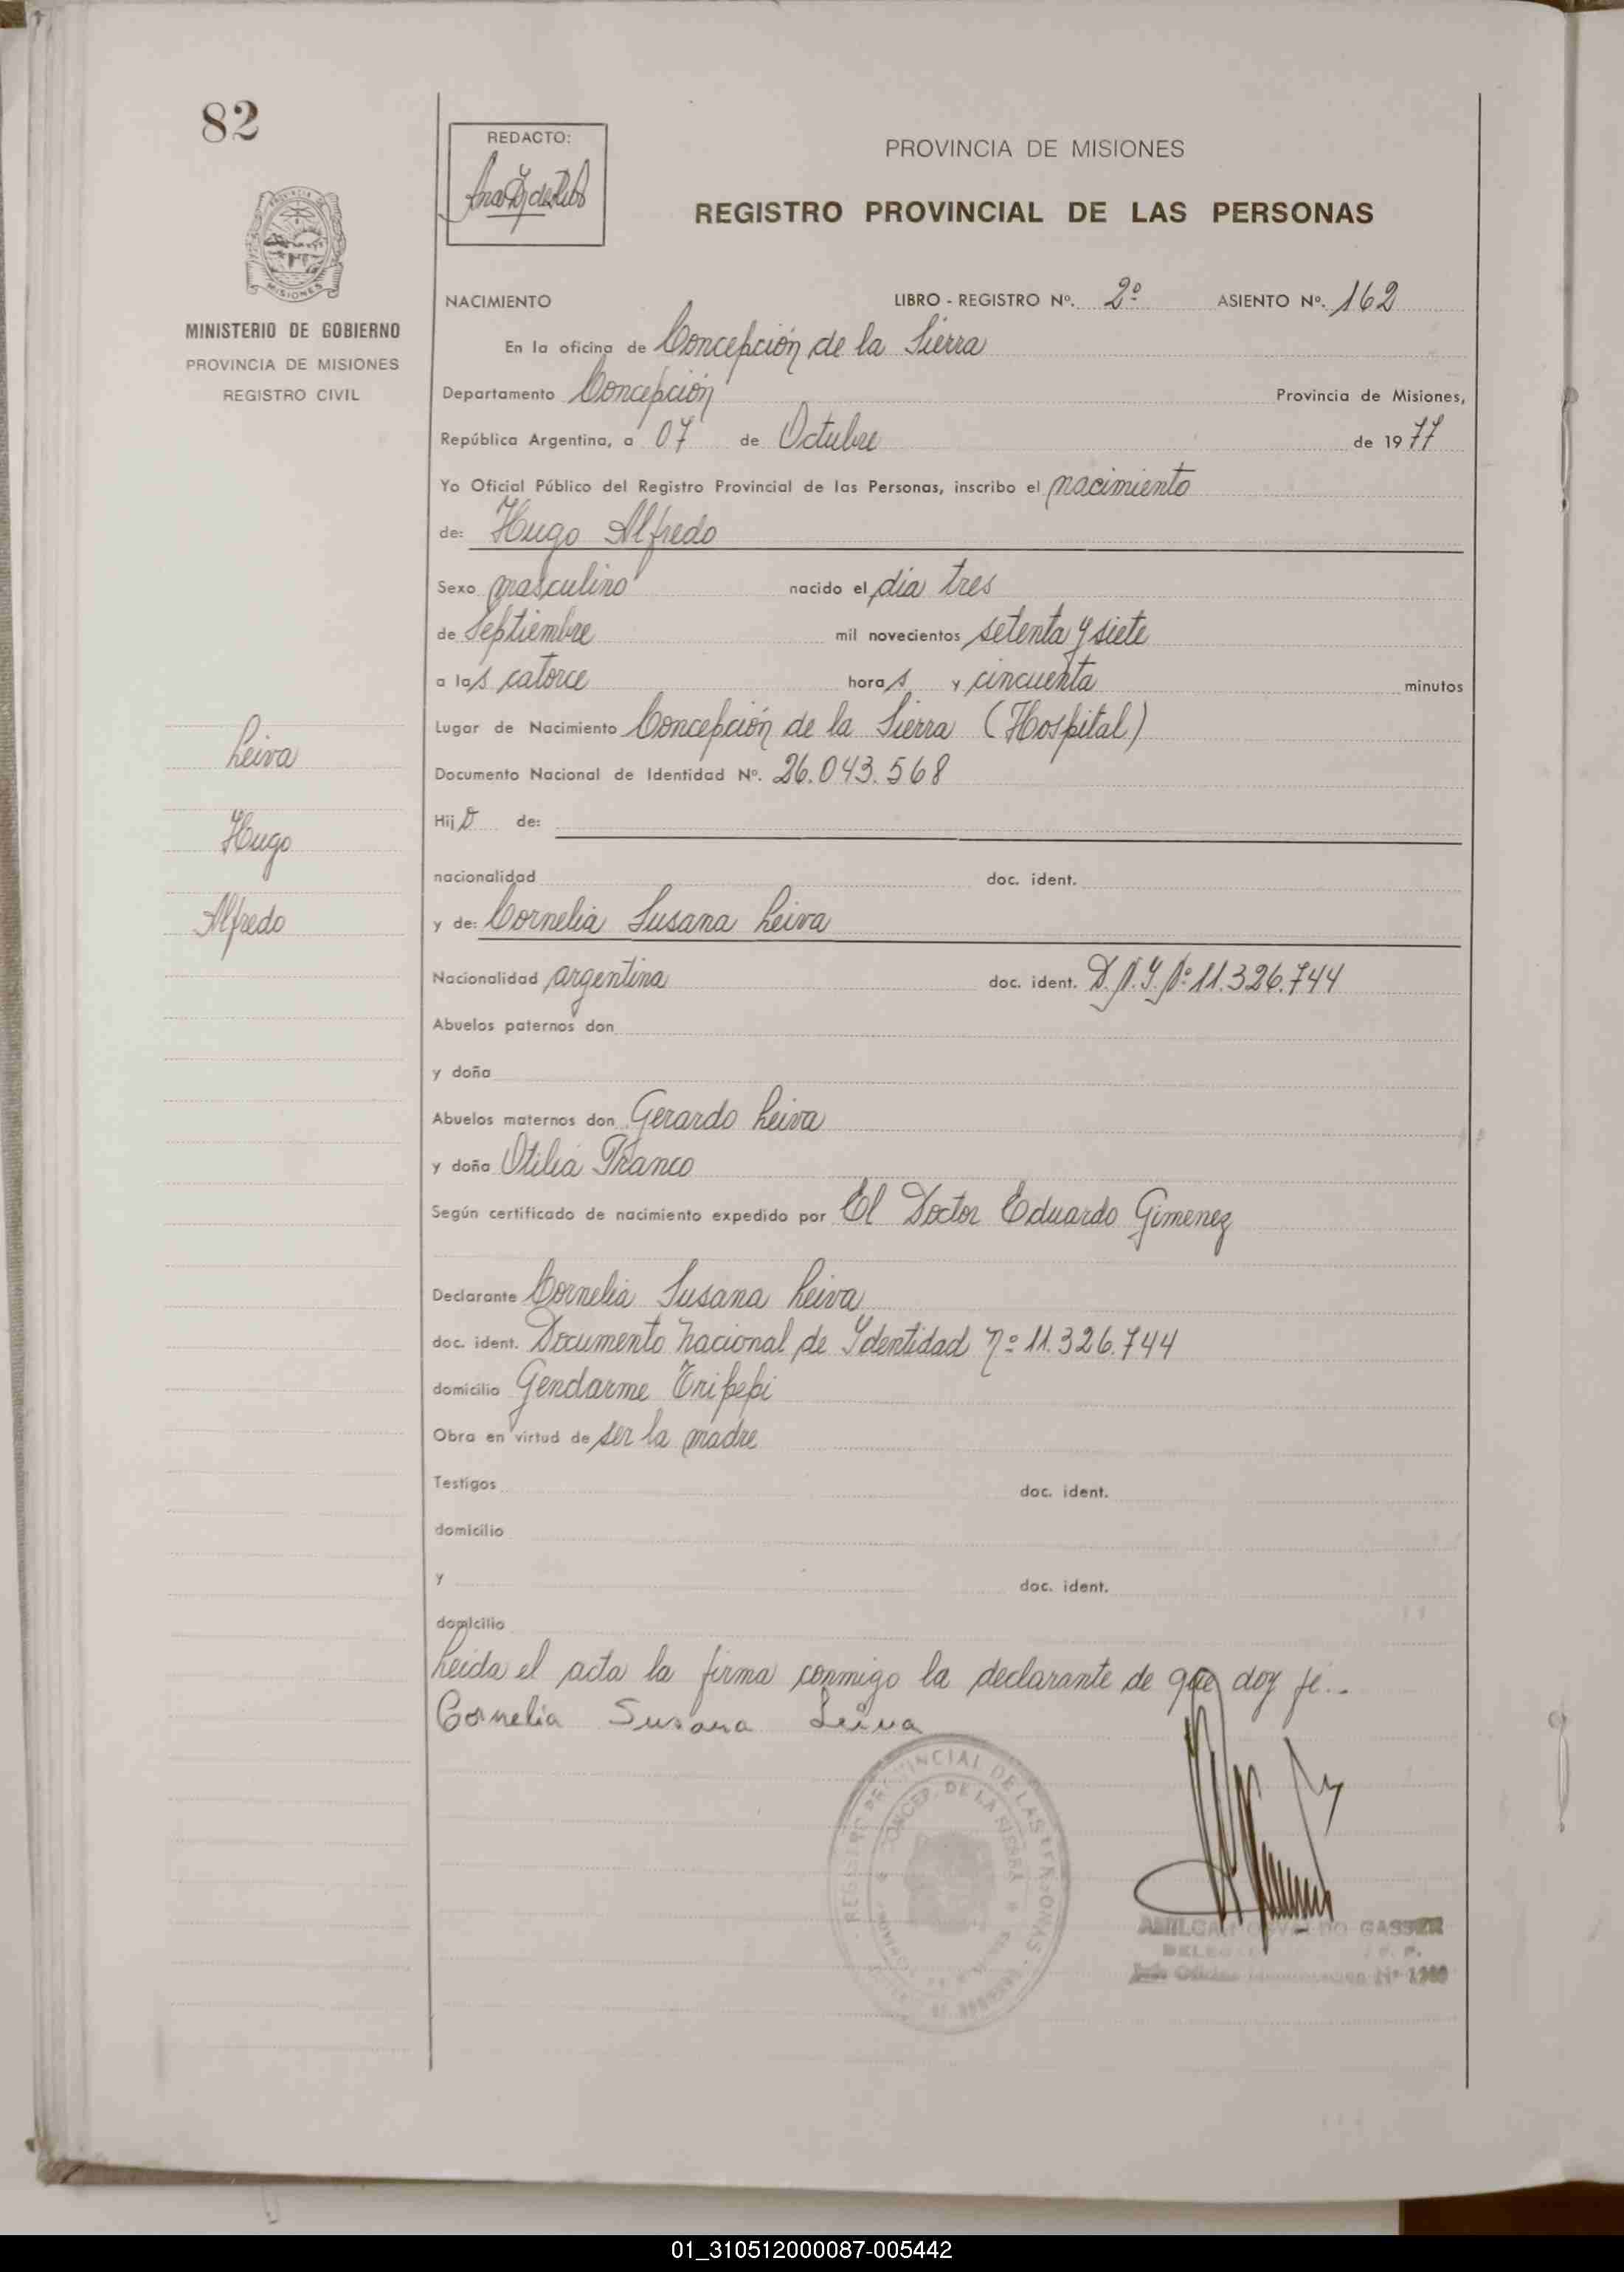 82
REDACTO:
PROVINCIA DE MISIONES
REGISTRO PROVINCIAL DE LAS PERSONAS
MISIONES
MINISTERIO DE GOBIERNO
PROVINCIA DE MISIONES
REGISTRO CIVIL
NACIMIENTO LIBRO - REGISTRO Nº. 2º ASIENTO Nº. 162
En la oficina de Concepción de la Sierra
Departamento Concepción Provincia de Misiones,
República Argentina, a 07 de Octubre de 1977
Yo Oficial Público del Registro Provincial de las Personas, inscribo el nacimiento
de: Hugo Alfredo
Sexo masculino nacido el día tres
de Septiembre mil novecientos setenta y siete
a las catorce horas y cincuenta minutos
Lugar de Nacimiento Concepción de la Sierra (Hospital)
Documento Nacional de Identidad Nº. 26.043.568
Leiva
Hugo
Alfredo
Hijo de:
nacionalidad doc. ident.
y de: Cornelia Susana Leiva
Nacionalidad argentina doc. ident. D.N.I. Nº 11.326.744
Abuelos paternos don
y doña
Abuelos maternos don Gerardo Leiva
y doña Otilia Franco
Según certificado de nacimiento expedido por El Doctor Eduardo Gimenez
Declarante Cornelia Susana Leiva
doc. ident. Documento Nacional de Identidad nº 11.326.744
domicilio Gendarme Tripepi
Obra en virtud de ser la madre
Testigos doc. ident.
domicilio
y doc. ident.
domicilio
Leida el acta la firma conmigo la declarante de que doy fé..
Cornelia Susana Leiva
REGISTRO PROVINCIAL DE LAS PERSONAS
CONCEP. DE LA SIERRA
AMILCAR OSVALDO GASSER
Jefe Oficina Nº
01_310512000087-005442